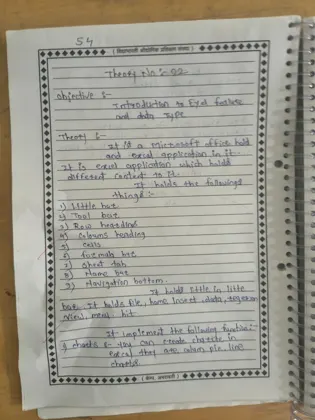 54
Theory No :- 02
objective :-
Introduction to Excel feature
and data Type
Theory :-
It is a Microsoft office hold
and excel application in it.
It is excel application which holds
different context to it.
It holds the following
things :-
1) Little bar
2) Tool bar
3) Row heading
4) Coloums heading
5) Cells
6) formula bar
7) Sheet tab
8) Mome bar
9) Navigation bottom.
It hold little in little
bar. It holds file, home insert, data,
view, menu, hit
It implement the following function:-
1) charts :- you can create charste in
Excel they are colum pie, line
charts.